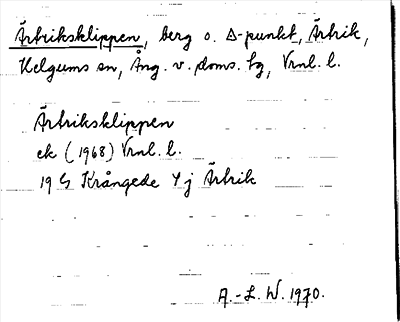 Ärtriksklippen, berg o. Δ-punkt, Ärtrik,
Helgums sn, Ång. v. doms. tg, Vrnl. l.
Ärtriksklippen
ek (1968) Vrnl. l.
19 G Krångede 4 j Ärtrik
A.-L. W. 1970.